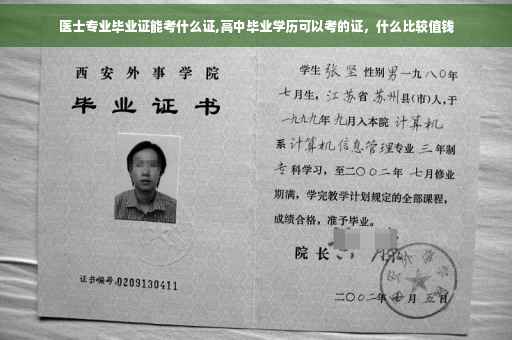 医士专业毕业证能考什么证,高中毕业学历可以考的证，什么比较值钱
西安外事学院
毕业证书
证书编号:0209130411
学生 张坚 性别 男 一九八〇年
七月生，江苏省 苏州县(市)人，于
一九九九年 九月入本院 计算机
系 计算机信息管理专业 三 年制
专 科学习，至二〇〇二年 七月修业
期满，学完教学计划规定的全部课程，
成绩合格，准予毕业。
院长
二〇〇二年 月 五 日